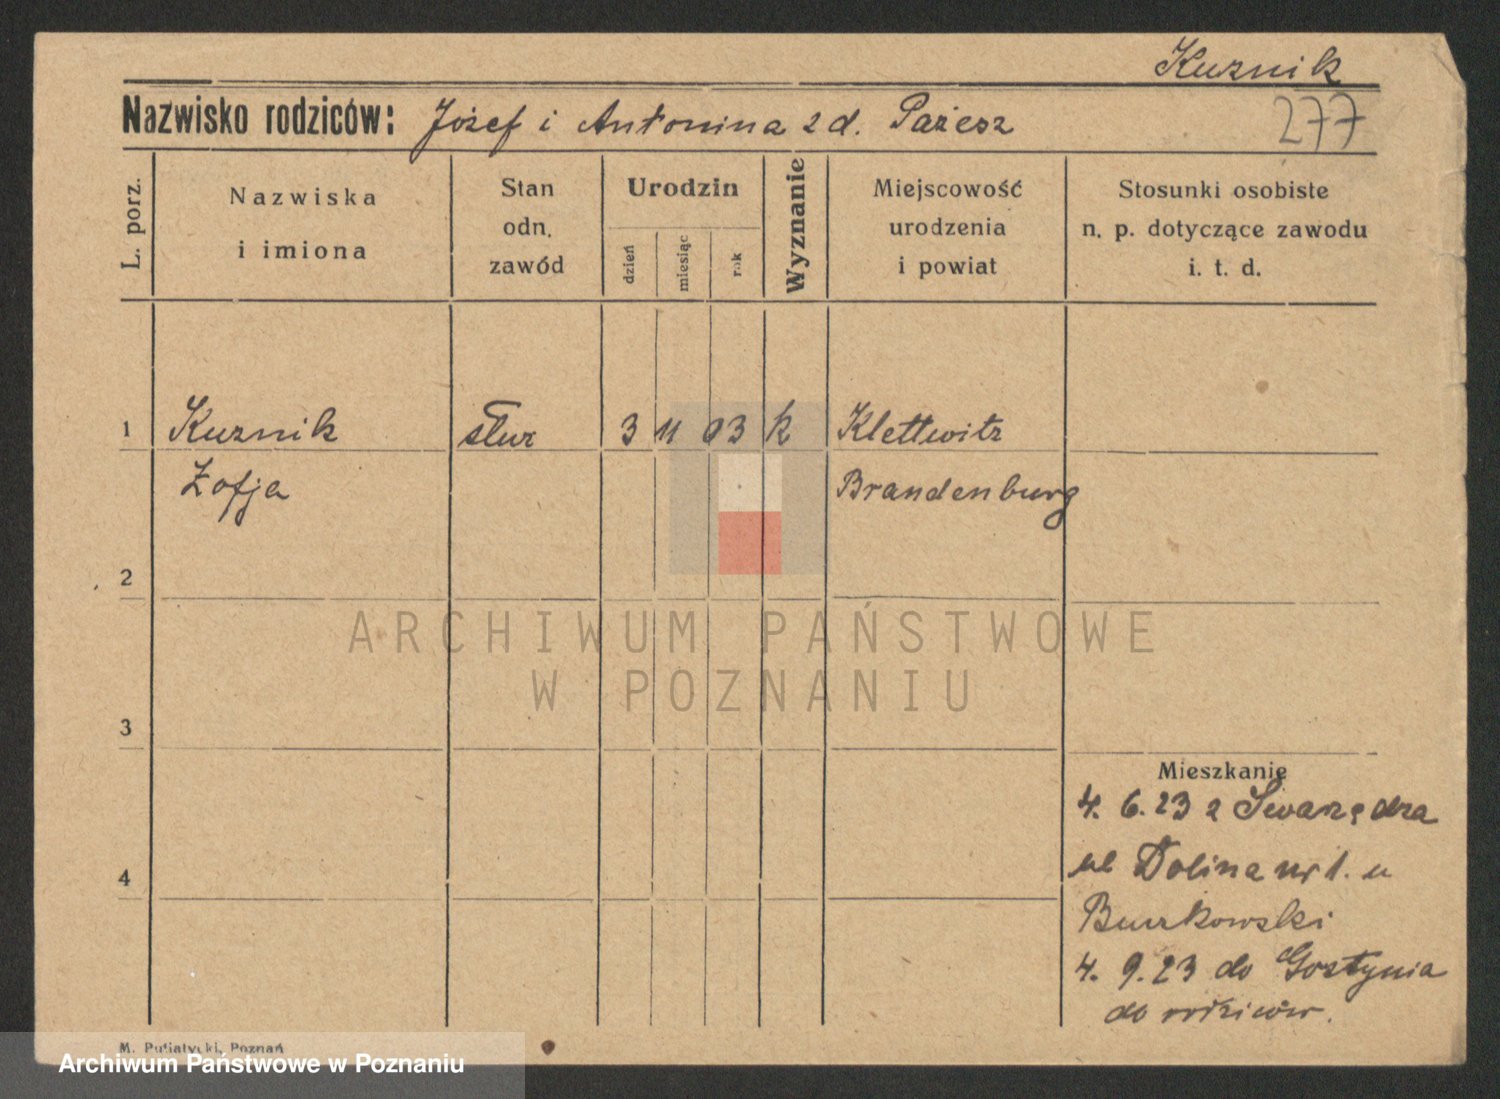 Kuznik
277
Nazwisko rodziców: Józef i Antonina z d. Pażesz
L. porz.
Nazwiska
i imiona
Stan
odn.
zawód
Urodzin
dzień
miesiąc
rok
Wyznanie
Miejscowość
urodzenia
i powiat
Stosunki osobiste
n. p. dotyczące zawodu
i. t. d.
1 Kuznik służ 3 11 03 k Klettwitz
Zofja Brandenburg
2
3
4
Mieszkanie
4. 6. 23 z Swarzędza
ul Dolina nr 1. u
Burkowski
4. 9. 23 do Gostynia
do rodziców.
ARCHIWUM PAŃSTWOWE
W POZNANIU
M. Putiatycki, Poznań
Archiwum Państwowe w Poznaniu